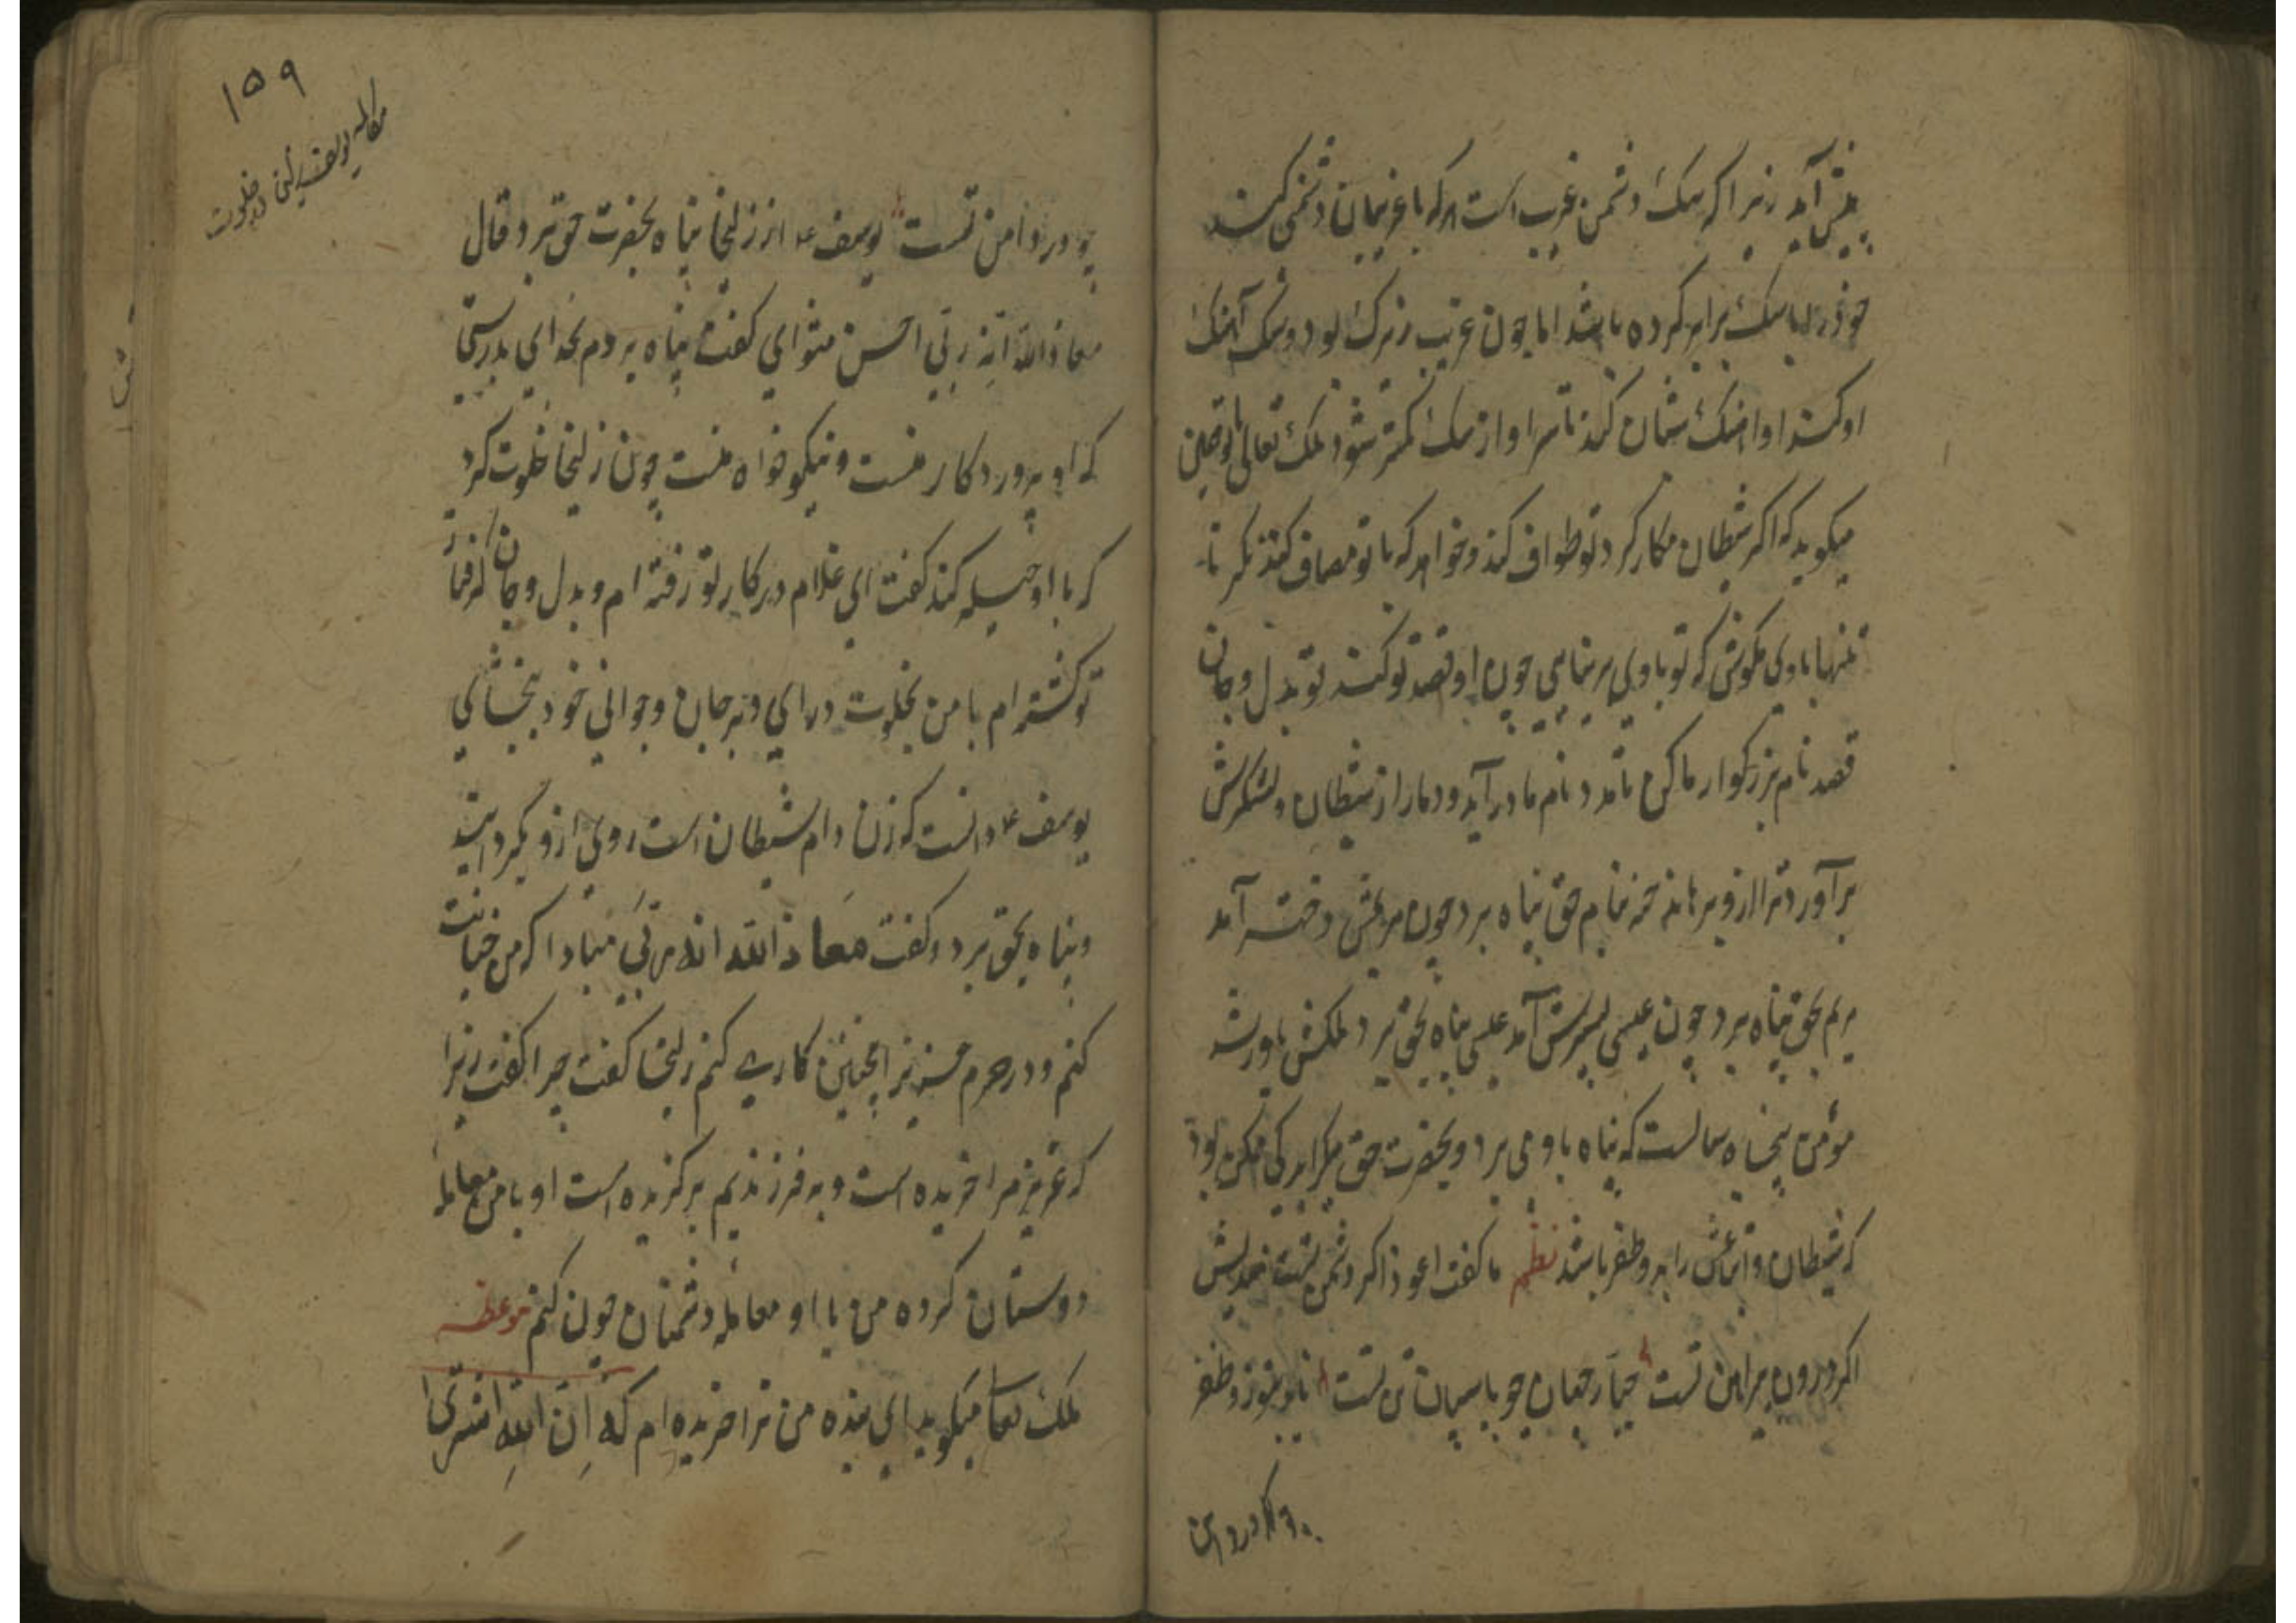 پیش آید زیرا که سک دشمن غریب است هر که با غریبان دشمنی کند
خود را با سک برابر کرده باشد اما چون غریب زیرک بود و سک آهنک
او کند او آهنک شبان کند تا سر او از سک کمتر شود ملک تعالی
میکوید که اکر شیطان مکار کرد تو طواف کند و خواهد که با تو مصاف کند نکر تا
تنها با وی مکوشی که تو با وی بر نیایی چون او قصد تو کند تو بدل و جان
قصد نام بزرکوار ما کن تا مدد نام ما در آید و دمار از شیطان و لشکرش
برآورد ترا ازو برهاند حنه بنام حق پناه برد چون مریمش دختر آمد
مریم بحق پناه برد چون عیسی پسرش آمد عیسی پناه بحق برد ملکش یاور شد
مؤمن پنجاه سالست که پناه باو می برد و بحضرت حق میکراید کی ممکن بود
که شیطان و اتباعش را برو ظفر باشد نظم تا کفت اعوذ اکر دشمن تست
اکر درون پیراهن تست جبار جهان چو پاسبان تن تست
چو در دامن تست یوسف ع از زلیخا پناه بحضرت حق برد و قال
معاذ الله انه ربی احسن مثوای کفت پناه بردم بخدای بدرستی
که او پروردکار منست و نیکو خواه منست چون زلیخا خلوت کرد
که با او حیله کند کفت ای غلام در کار تو رفته ام و بدل و جان کرفتار
تو کشته ام با من بخلوت درای و بر جان و جوانی خود ببخشای
یوسف ع دانست که زن دام شیطان است روی ازو بگردانید
و پناه بحق برد و کفت معاذ الله انه ربی مبادا که من خیانت
کنم و در حرم عزیز اینچنین کاری کنم زلیخا کفت چرا کفت زیرا
که عزیز مرا خریده است و به فرزندیم برکزیده است او با من معامله
دوستان کرده من با او معامله دشمنان چون کنم موعظه
ملک تعا میکوید ای بنده من ترا خریده ام که اِن الله اشتری
۱۵۹
مکالمه یوسف در خلوت